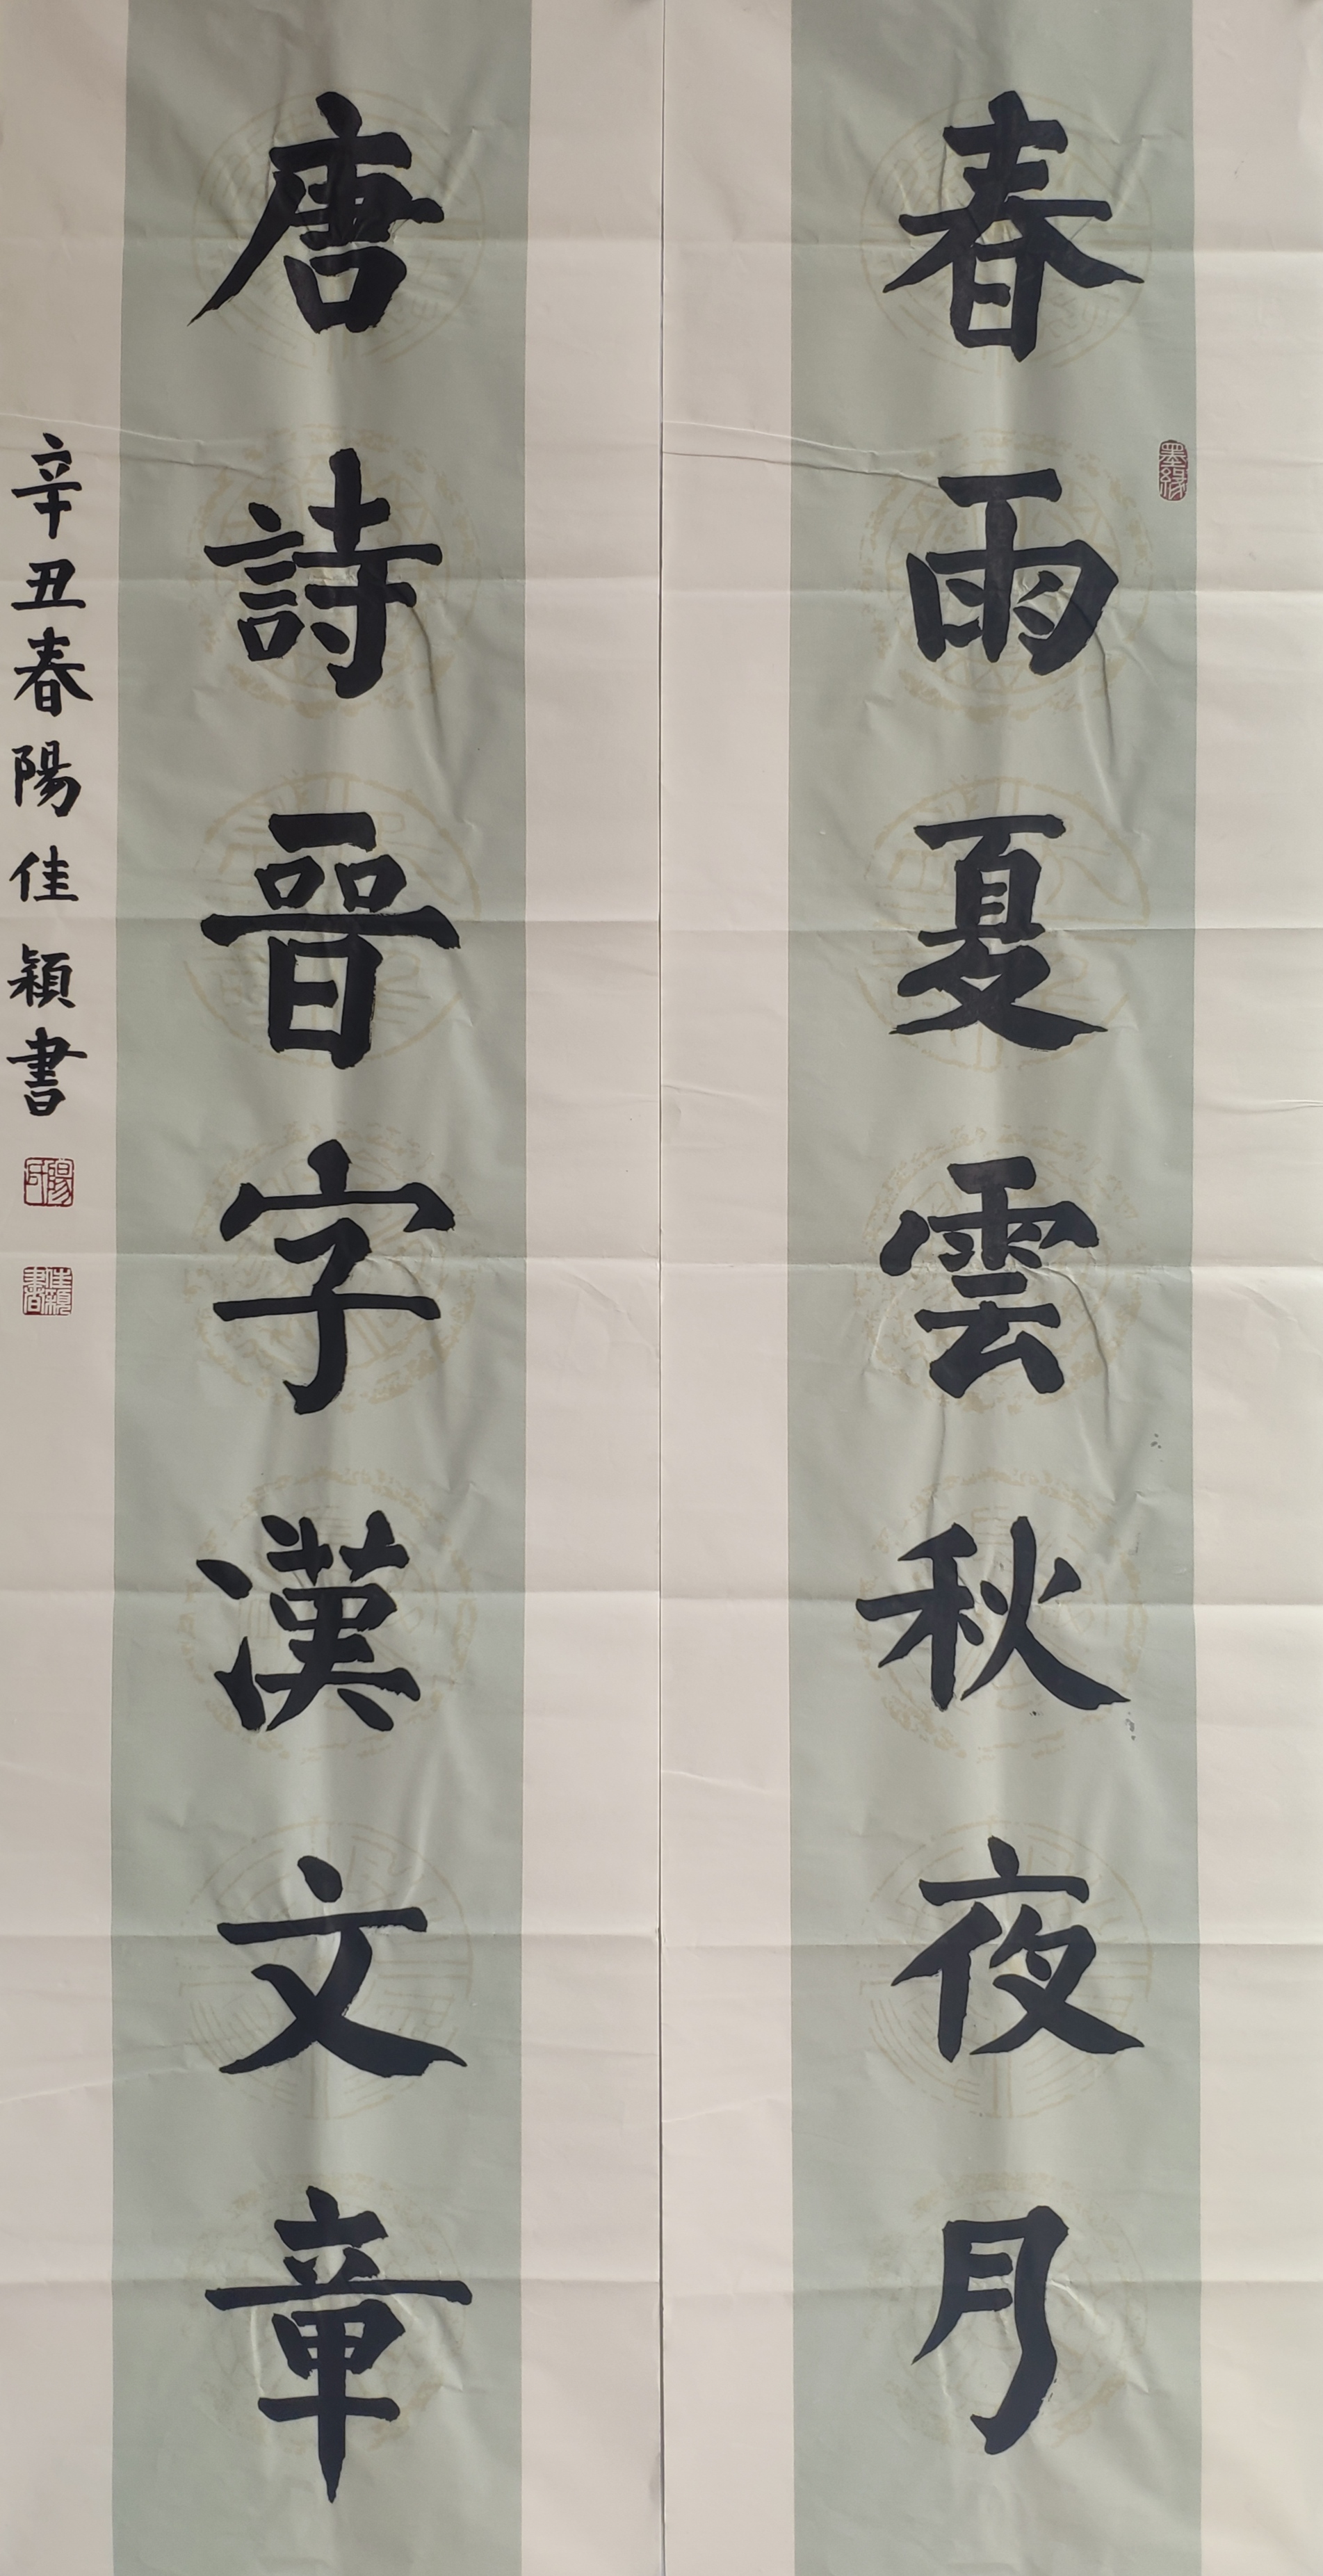 春雨夏雲秋夜月
墨緣
唐詩晉字漢文章
辛丑春陽佳穎書
佳穎書